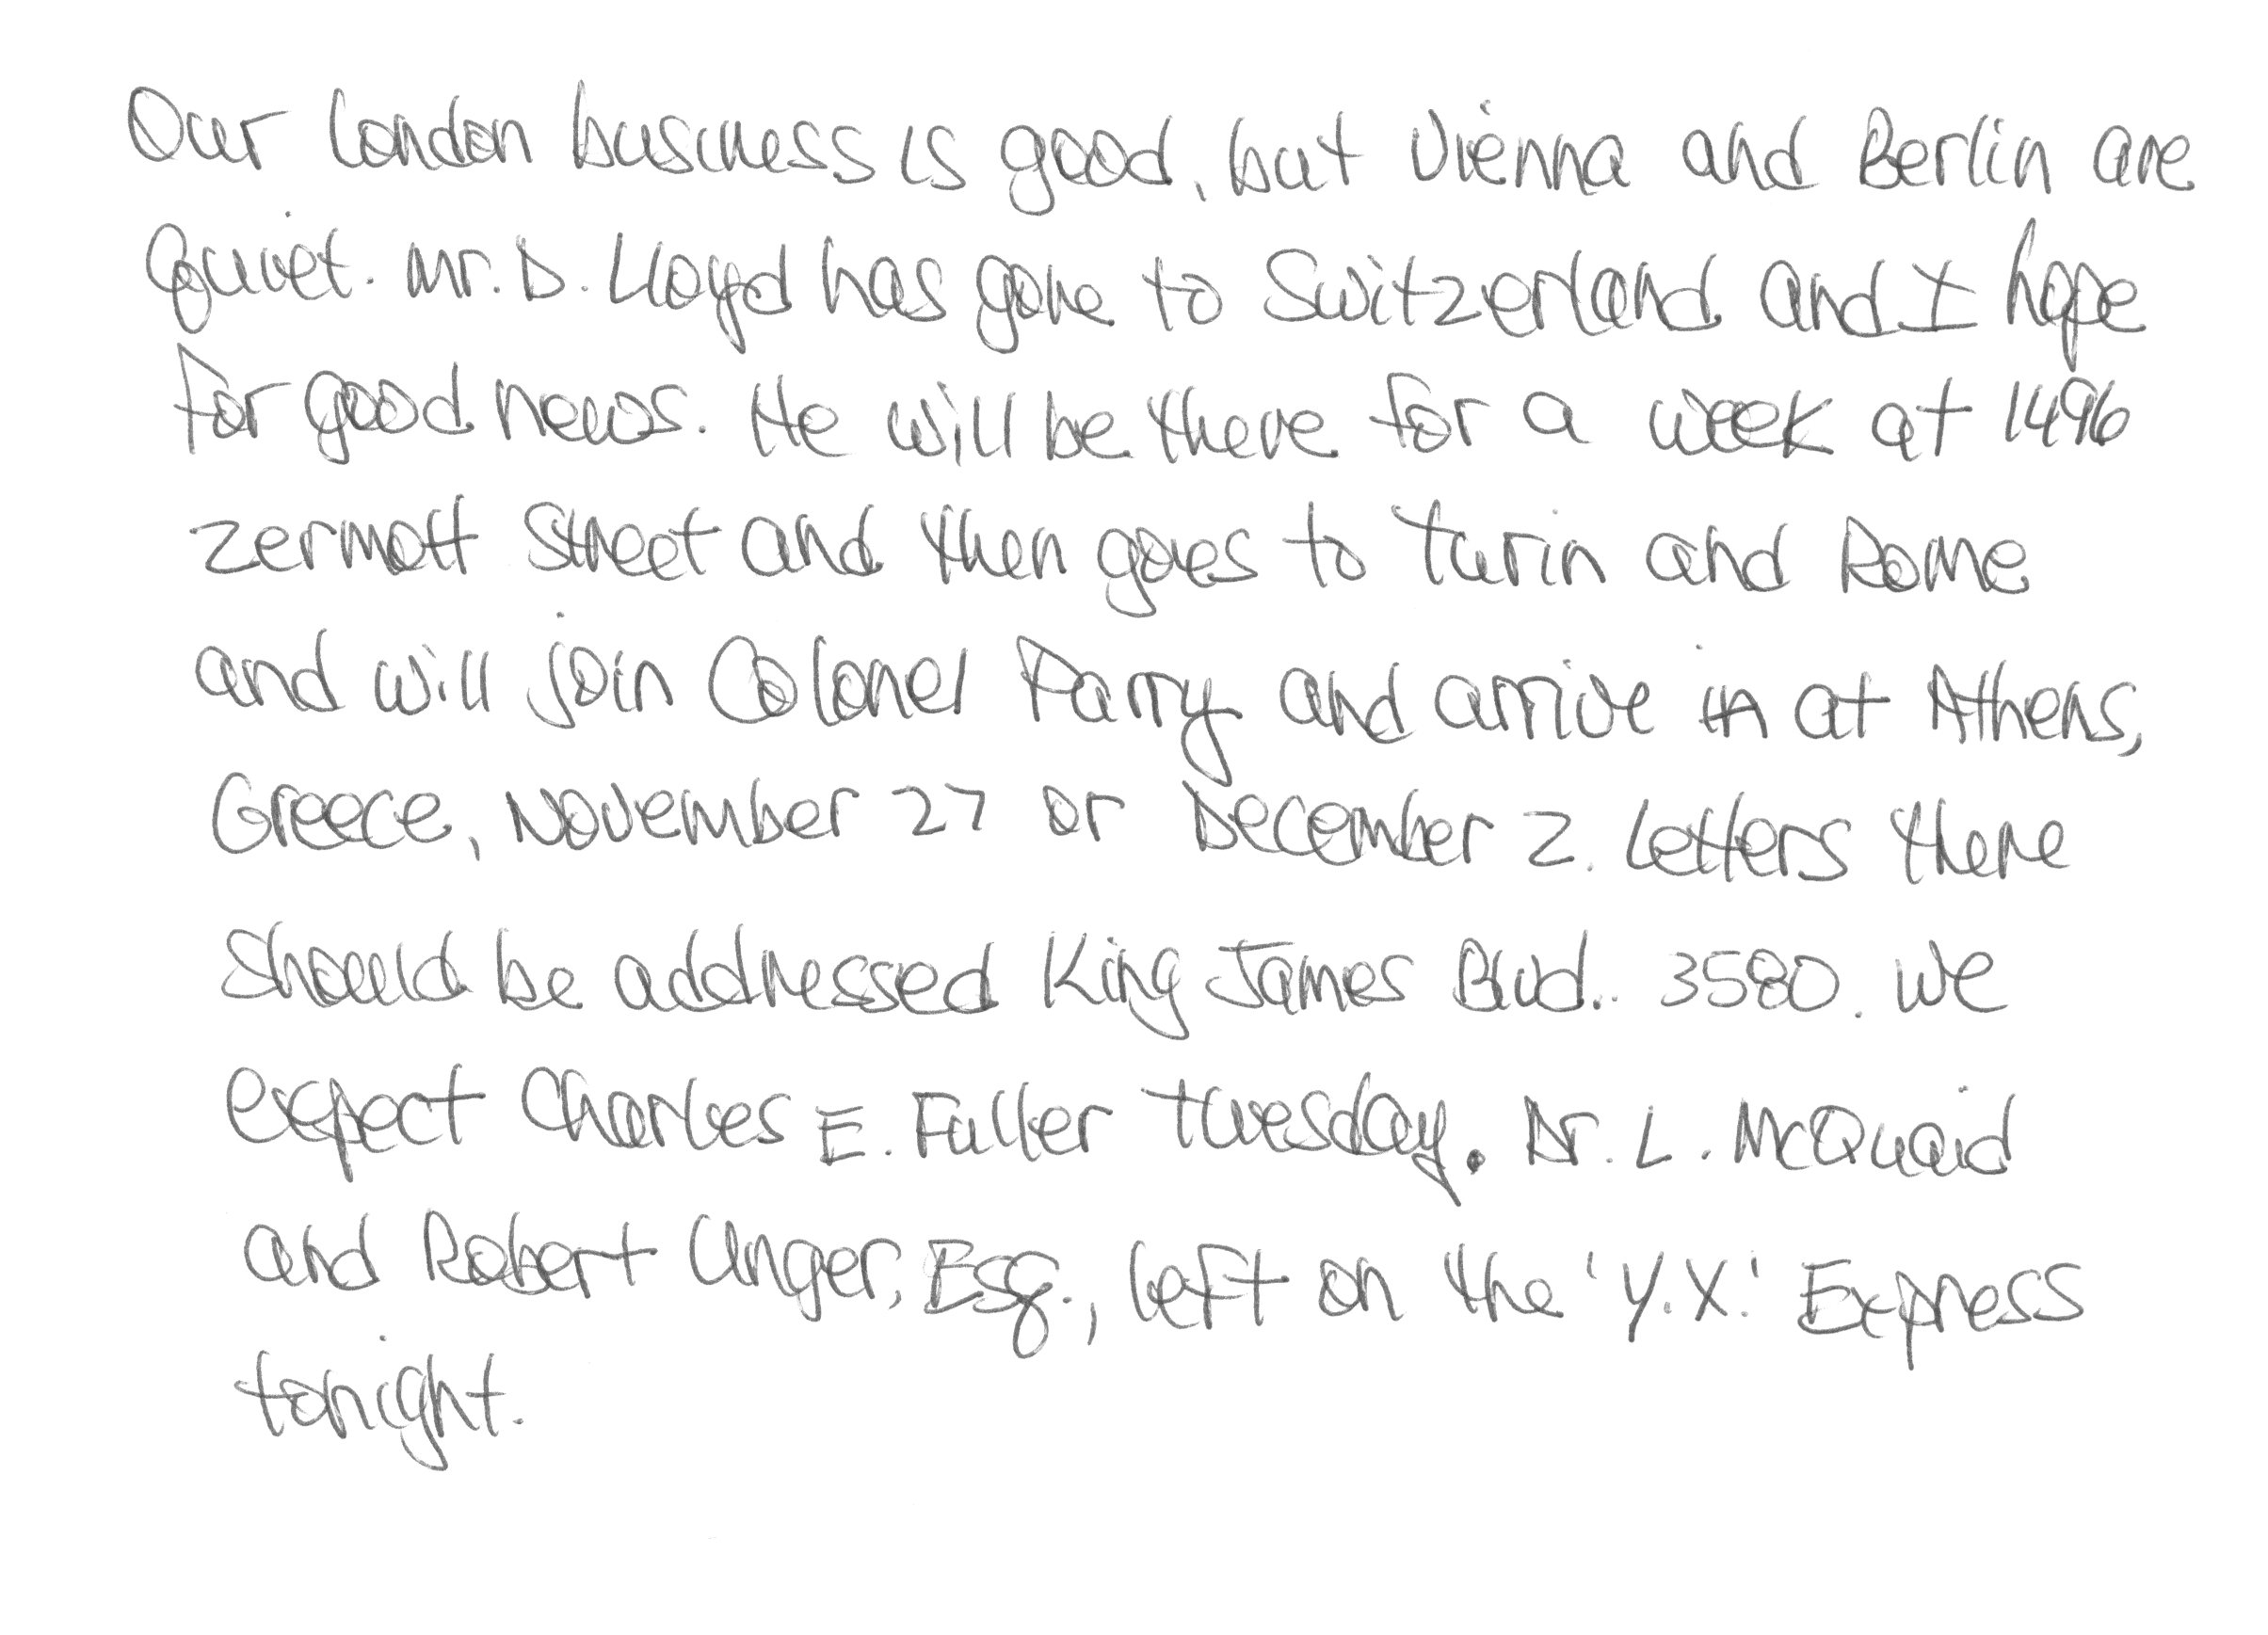 Our London business is good, but Vienna and Berlin are
quiet. Mr. D. Lloyd has gone to Switzerland and I hope
for good news. He will be there for a week at 1496
Zermott Street and then goes to Turin and Rome
and will join Colonel Parry and arrive in at Athens,
Greece, November 27 or December 2. Letters there
should be addressed King James Blvd.. 3580. We
expect Charles E. Fuller Tuesday. Dr. L. McQuaid
and Robert Unger, Esq., left on the 'Y.X.' Express
tonight.